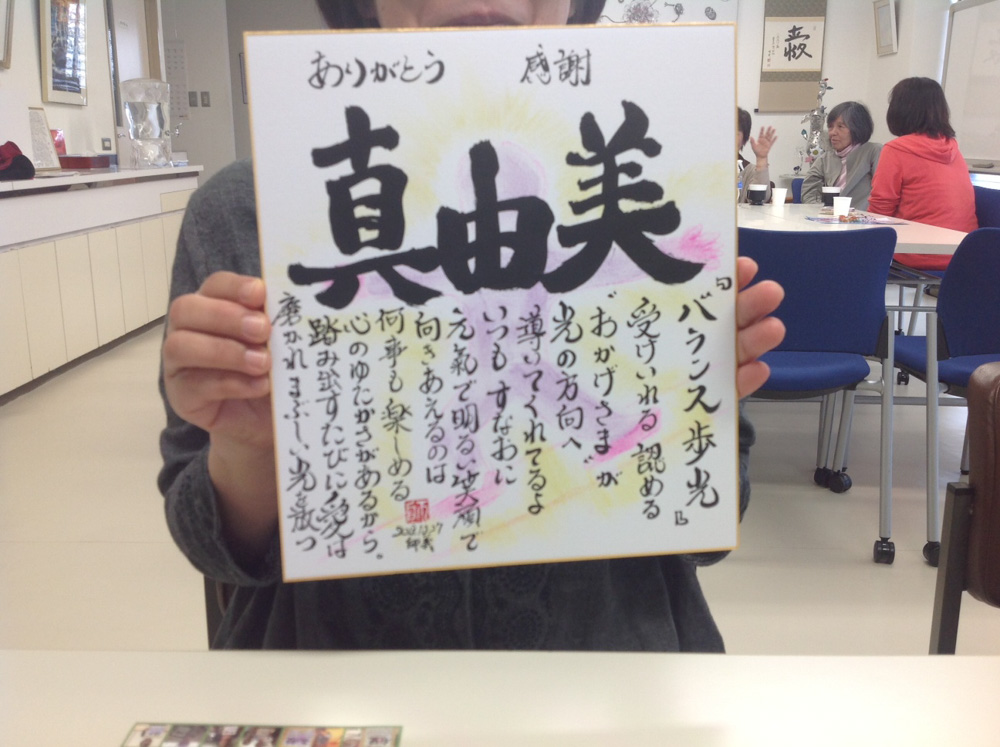 ありがとう　感謝
真由美
『バランス歩光』
受けいれる 認める
"おかげさま"が
光の方向へ
導いてくれてるよ
いつもすなおに
元氣で明るい笑顔で
向きあえるのは
何事も楽しめる
心のゆたかさがあるから。
踏み出すたびに愛は
磨かれまぶしい光を放つ